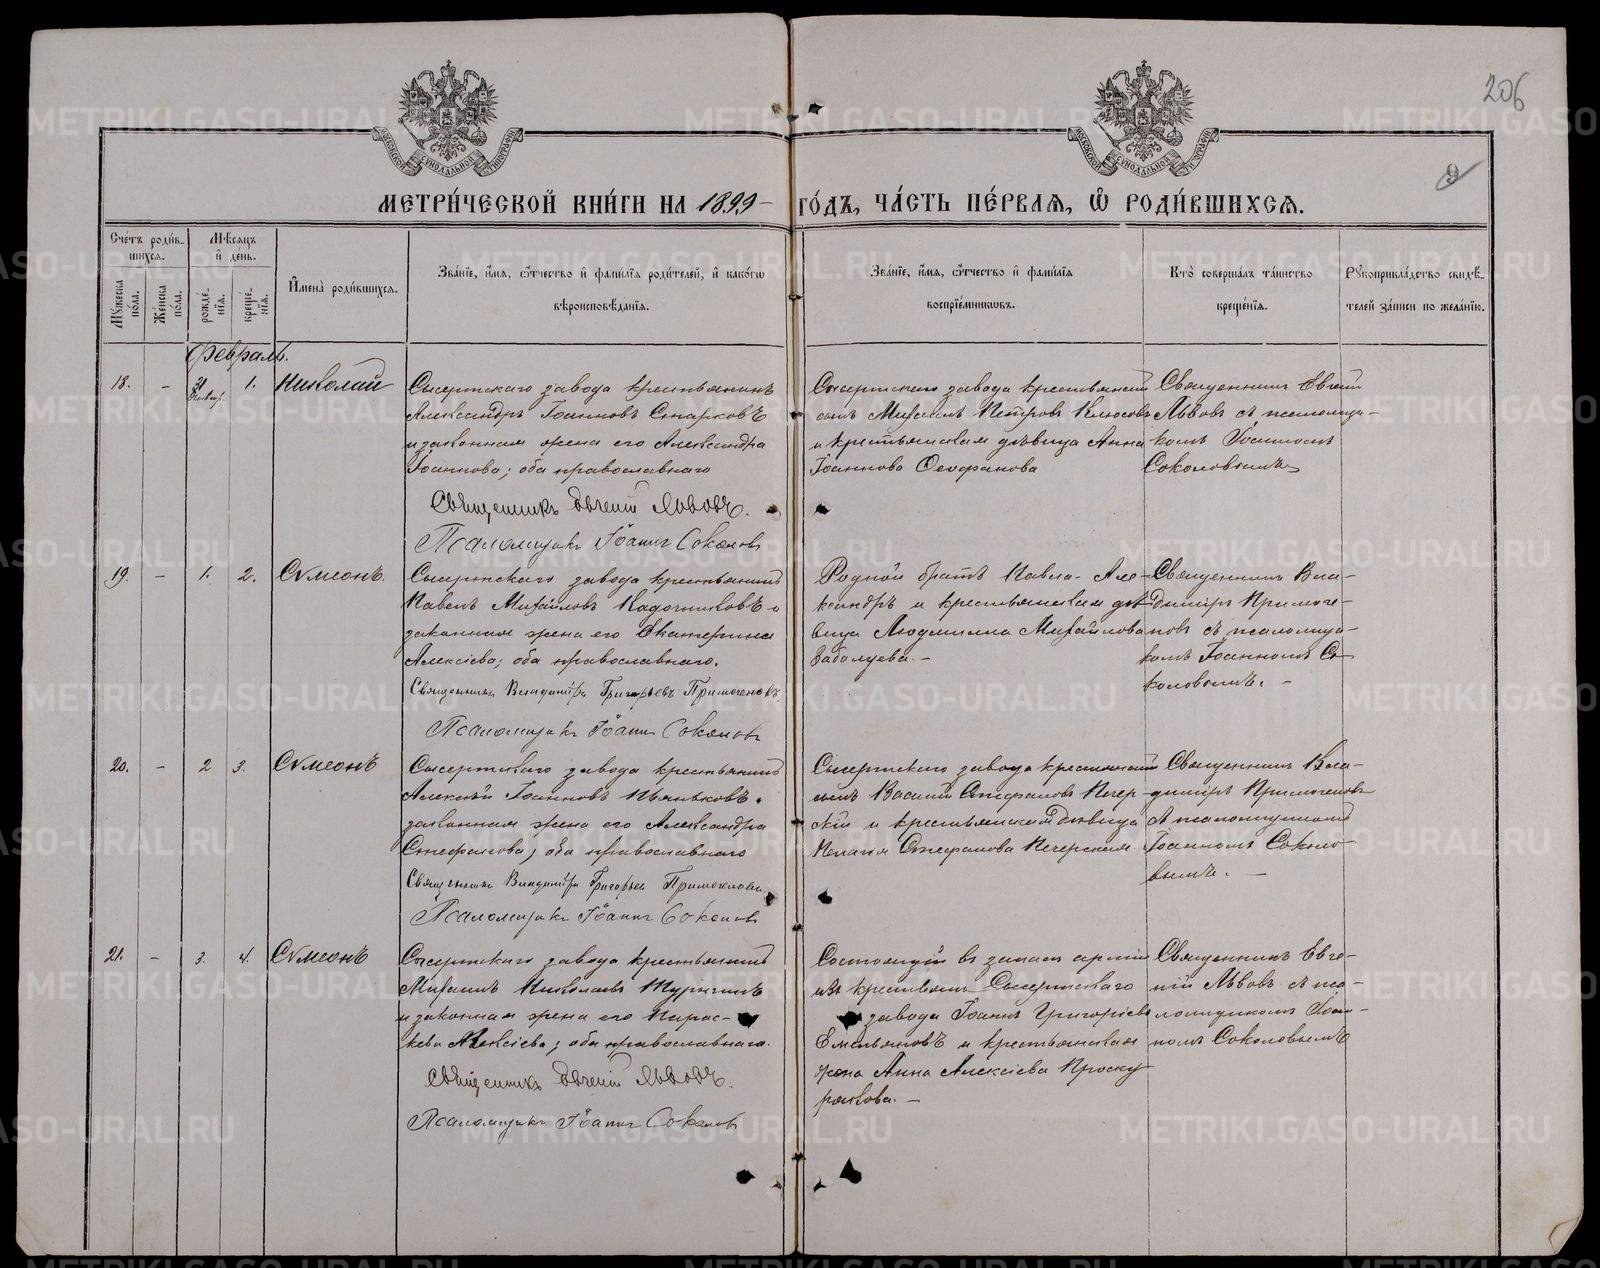 206
9
МЕТРИ́ЧЕСКОЙ КНИ́ГИ НА 1899 ГО́ДЪ, ЧА́СТЬ ПЕ́РВАѦ, Ѽ РОДИ́ВШИХСѦ.
Сче́тъ роди́вшихсѧ.
Мꙋ́жеска по́ла.
Же́нска по́ла.
Мѣ́сѧцъ и҆ де́нь.
рожде́нїѧ.
креще́нїѧ.
И҆мена̀ роди́вшихсѧ.
Зва́нїе, и҆́мѧ, ѻ҆́тчество и҆ фами́лїѧ роди́телей, и҆ како́гѡ
вѣроисповѣ́данїѧ.
Зва́нїе, и҆́мѧ, ѻ҆́тчество и҆ фами́лїѧ
воспрїе́мникѡвъ.
Кто̀ соверша́лъ та́инство
креще́нїѧ.
Рꙋкоприкла́дство свидѣ́-
телей за́писи по жела́нїю.
Февраль.
18. - 31 Январ. 1. Николай
Сысертскаго завода крестьянинъ
Александръ Іоанновъ Старковъ
и законная жена его Александра
Іоаннова; оба православнаго
Священникъ Евгений Львовъ.
Псаломщикъ Іоаннъ Соколовъ
Сысертскаго завода крестьянскій
сынъ Михаилъ Петровъ Клюсовъ
и крестьянская дѣвица Анна
Іоаннова Ѳеофанова
Священникъ Евгеній
Львовъ съ псаломщи-
комъ Іоанномъ
Соколовымъ
19. - 1. 2. Сѵмеонъ.
Сысертскаго завода крестьянинъ
Павелъ Михайловъ Кадочниковъ и
законная жена его Екатерина
Алексіева; оба православнаго.
Священникъ Владиміръ Григорьевъ Примогеновъ
Псаломщикъ Іоаннъ Соколовъ
Родной братъ Павла Але-
ксандръ и крестьянская дѣ-
вица Людмилла Михайлова
Заболуева. -
Священникъ Вла-
диміръ Примоге-
новъ съ псаломщи-
комъ Іоанномъ Со-
коловымъ. -
20. - 2 3. Сѵмеонъ
Сысертскаго завода крестьянинъ
Алексѣй Іоанновъ Пьянковъ.
законная жена его Александра
Стефанова; оба православнаго
Священникъ Владиміръ Григорьевъ Примогеновъ
Псаломщикъ Іоаннъ Соколовъ
Сысертскаго завода крестьянскій
сынъ Василій Стефановъ Печер-
скій и крестьянская дѣвица
Пелагія Стефанова Печерская.
Священникъ Вла-
диміръ Примогеновъ
съ псаломщикомъ
Іоанномъ Соколо-
вымъ. -
21. - 3. 4. Сѵмеонъ
Сысертскаго завода крестьянинъ
Михаилъ Николаевъ Турыгинъ
и законная жена его Парас-
кева Алексіева; оба православнаго.
Священникъ Евгений Львовъ.
Псаломщикъ Іоаннъ Соколовъ
Состоящій въ запасѣ арміи
изъ крестьянъ Сысертскаго
завода Іоаннъ Григоріевъ
Емельяновъ и крестьянская
жена Анна Алексіева Проску-
рякова. -
Священникъ Евге-
ній Львовъ съ пса-
ломщикомъ Іоан-
номъ Соколовымъ